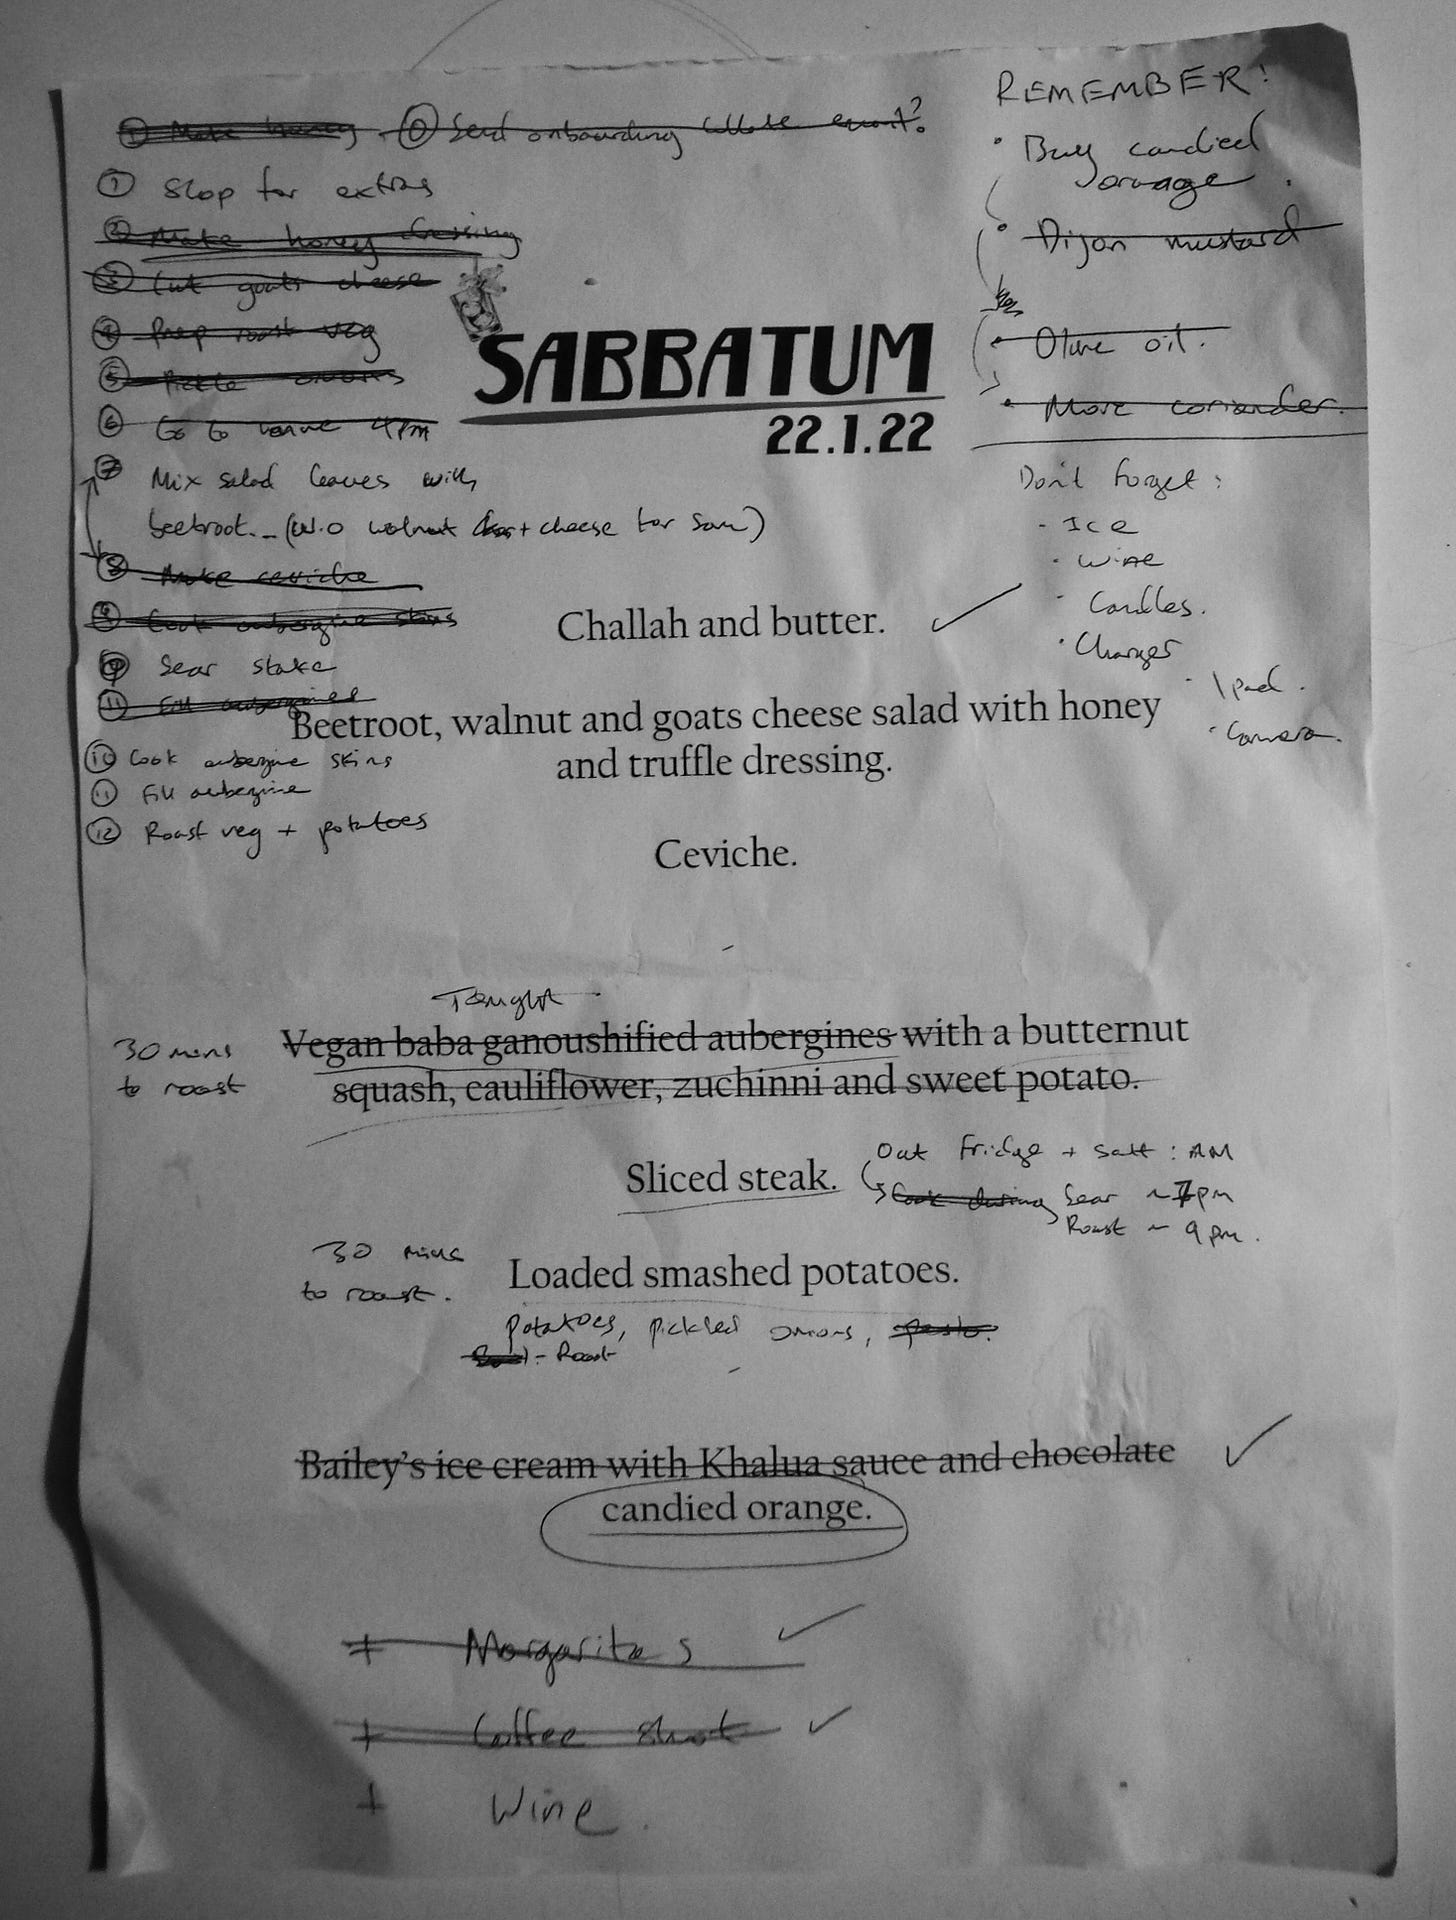 ① Make honey - ⓪ Send onboarding welcome email?
① Shop for extras
② Make honey dressing
③ Cut goats cheese
④ Prep roast veg
⑤ Pickle onions
⑥ Go to venue 4pm
⑦ Mix salad leaves with
beetroot.. (W.O walnut + cheese for Sam)
⑧ Make ceviche
⑨ Cook aubergine skins
⑨ Sear stake
⑪ Fill aubergines
⑩ Cook aubergine skins
⑪ Fill aubergine
⑫ Roast veg + potatoes
REMEMBER!
• Buy candied
orange.
• Dijon mustard
• Olive oil.
• More coriander.
Don't forget:
- Ice
- Wine
- Candles.
- Charger
- Ipad.
- Camera.
SABBATUM
22.1.22
Challah and butter.
Beetroot, walnut and goats cheese salad with honey
and truffle dressing.
Ceviche.
Tonight
30 mins
to roast
Vegan baba ganoushified aubergines with a butternut
squash, cauliflower, zuchinni and sweet potato.
Sliced steak.
Out fridge + salt : AM
Cook during Sear ~ 7pm
Roast ~ 9pm.
30 mins
to roast.
Loaded smashed potatoes.
potatoes, pickled onions, pesto.
- Roast
Bailey's ice cream with Khalua sauce and chocolate
candied orange.
+ Margaritas
+ Coffee shot
+ Wine.